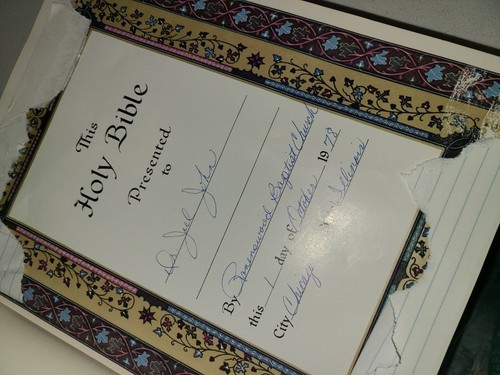 This
Holy Bible
Presented
to
Dr. Joel John
By Ravenswood Baptist Church
this 1 day of October 1978
City Chicago Illinois